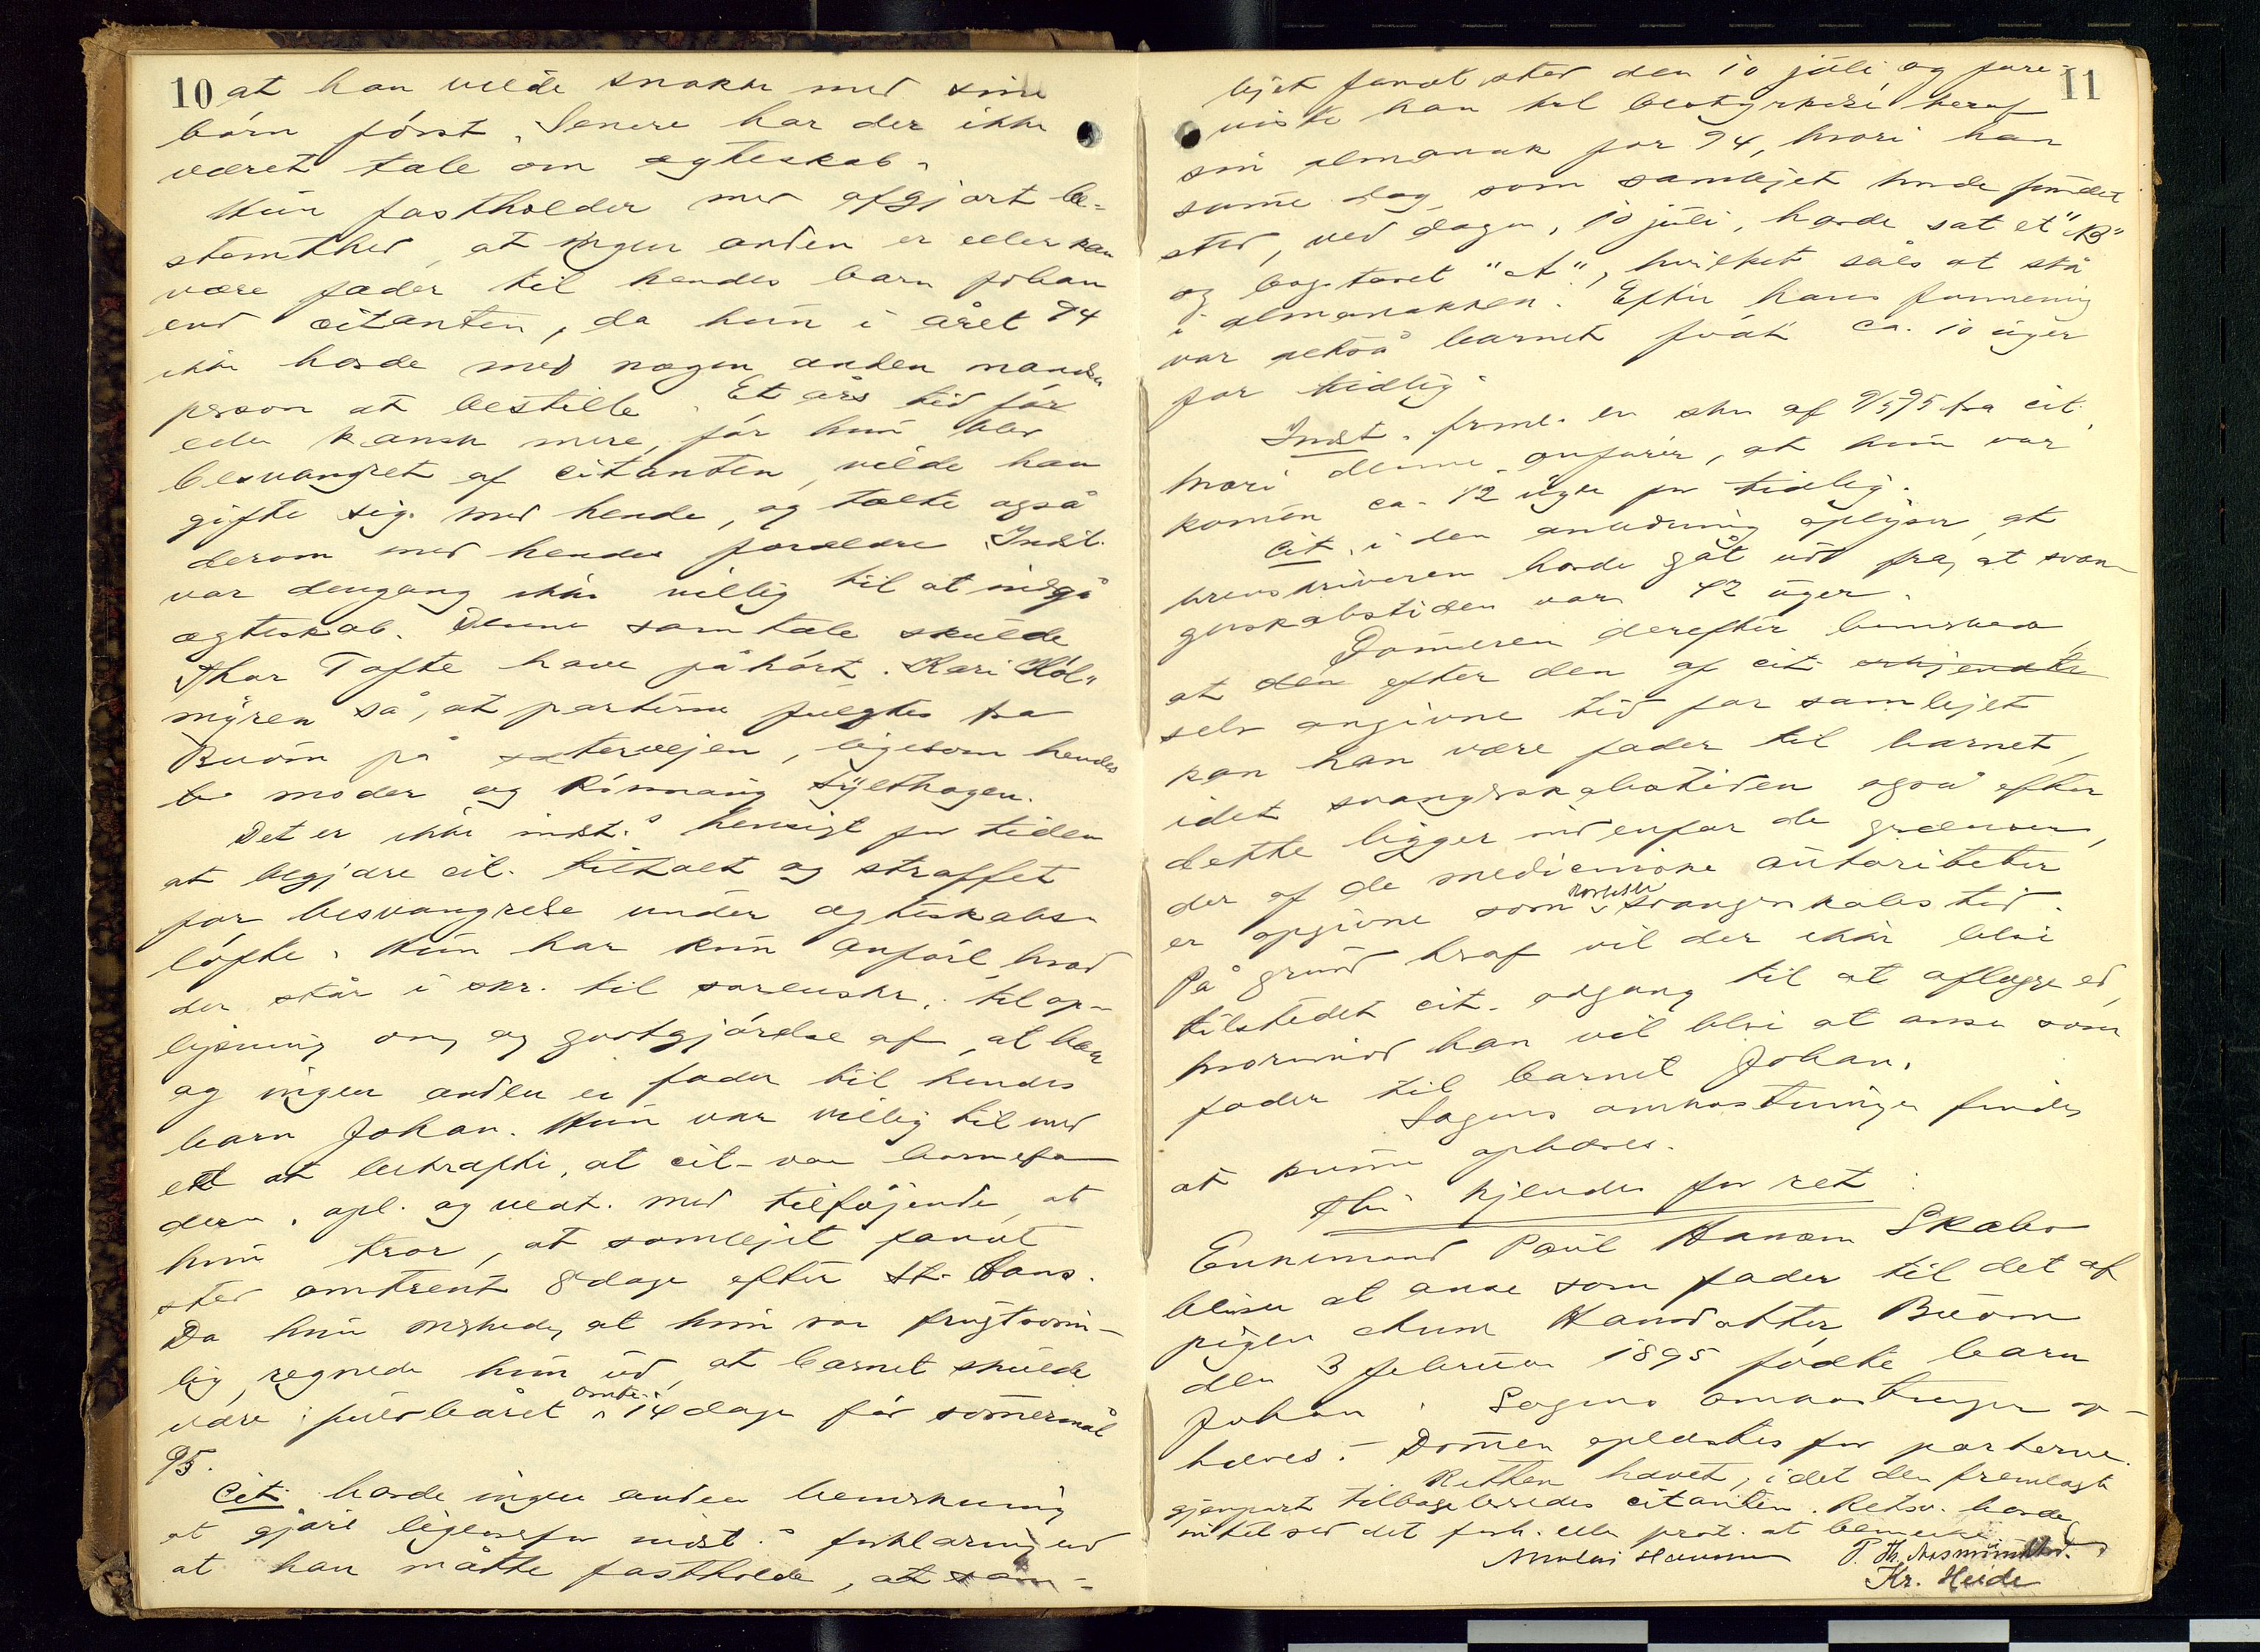 10 at han vilde snakke med sine
börn först. Senere har der ikke
været tale om ægteskab.
Hun fastholder med afgjort be-
stemthed, at ingen anden er eller kan
være fader til hendes barn Johan
end citanten, da hun i året 94
ikke havde med nogen anden mands-
person at bestille. Et års tid för
eller kanske mere, för hun blev
besvangret af citanten, vilde han
gifte sig med hende, og talte også
derom med hendes forældre. Indst.
var dengang ikke villig til at indgå
ægteskab. Denne samtale skulde
Thor Tofte have påhört. Kari Höl-
myren så, at parterne fulgtes fra
Buöm på sætervejen, ligesom hendes
moder og Rönnaug Sylthagen.
Det er ikke indst.s hensigt for tiden
at begjære cit. tiltalt og straffet
for besvangrelse under ægteskabs-
löfte. Hun har kun anfört hvad
der står i skr. til sorenskr. til op-
lysning om og godtgjörelse af, at han
og ingen anden er fader til hendes
barn Johan. Hun var villig til med
ed at bekræfte, at cit. var barnefa-
deren. opl. og vedt. med tilföjende, at
hun tror, at samlejet fandt
sted omtrent 8 dage efter St. Hans.
Da hun mærkede, at hun var frugtsomme-
lig, regnede hun ud, at barnet skulde
være fuldbåret omtr. 14 dage för sommermål
95.
Cit. havde ingen anden bemerkning
at gjöre ligeoverfor indst.s forklaring end
at han måtte fastholde, at sam-
11
lejet fandt sted den 10 juli og fore-
viste han til bestyrkelse heraf
sin almanak for 94, hvori han
samme dag som samlejet havde fundet
sted, ved dagen, 10 juli, havde sat et "B"
og bogstavet "A", hvilket såes at stå
i almanakken. Efter hans formening
var altså barnet född ca. 10 uger
for tidlig.
Indst. freml. en skr. af 9/3 95 fra cit.
hvori denne anförer, at hun var
kommen ca. 12 uger for tidlig.
Cit. i den anledning oplyser, at
brevskriveren havde gåt ud fra, at svan-
gerskabstiden var 42 uger.
Domeren derefter bemerkede
at den efter den af cit. erkjendte
selv angivne tid for samlejet
kan han være fader til barnet,
idet svangerskabstiden også efter
dette ligger indenfor de grændser,
der af de medicinske autoriteter
er opgivne som svangerskabstid.
På grund heraf vil der ikke blive
tilstedet cit. adgang til at aflægge ed,
hvorimod han vil blive at anse som
fader til barnet Johan.
Sagens omkostninger findes
at kunne ophæves.
Thi kjendes for ret:
Enkemand Paul Hansen Skabo
bliver at anse som fader til det af
pigen Anne Hansdatter Buöm
den 3 februar 1895 fødte barn
Johan. Sagens omkostninger op-
hæves. – Dommen oplæstes for parterne.
Retten hævet, idet den fremlagte
gjenpart tilbageleveredes citanten. Retsv. havde
intet ved det forh. eller prot. at bemerke.
Kr. Heide